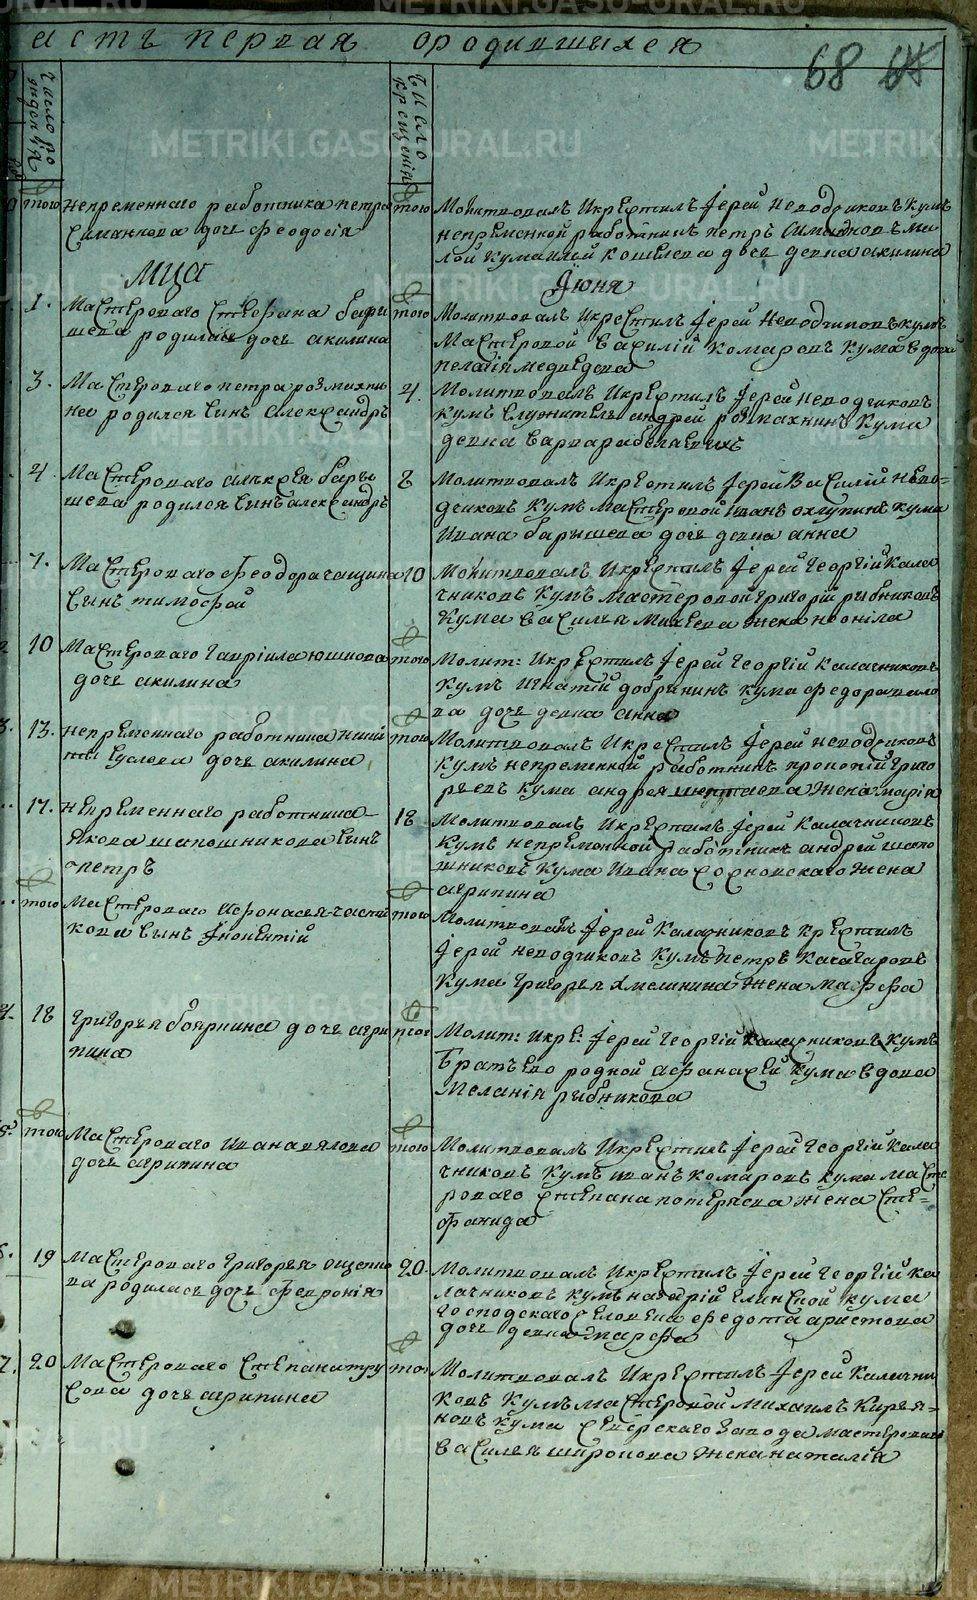 асть первая о родившыхся
68
Число рождения
Число крещения
того непременнаго работника петра
Симанкова дочь феодосiя
того Молитвовалъ Икрестилъ Iерей Неводчиковъ Кумъ
непременной работникъ петръ
дочь девка акилина
Мца Iюня
1. Мастероваго Стефана бары
шева родилась дочь акилина
того Молитвовалъ Икрестилъ Iерей Неводчиковъ кумъ
Мастеровой Василiй Комаровъ Кума вдова
пелагiя медведева
3. Мастероваго петра розмахни
на родился сынъ александръ
4. Молитвовалъ Икрестилъ Iерей Неводчиковъ
Кумъ служитель андрей розмахнинъ Кума
девка варвара
4. Мастероваго алексея бары
шева родился сынъ александръ
8 Молитвовалъ Икрестилъ Iерей Василiй Нево-
дчиковъ Кумъ мастеровой Иванъ охлупинъ кума
Ивана барышева дочь девка анна
7. Мастероваго феодора чащина
сынъ тимофей
10 Молитвовалъ Икрестилъ Iерей Георгiй Кала
чниковъ Кумъ Мастеровой григорiй рыбниковъ
Кума Василья Михеева жена неонила
10 Мастероваго Гаврiила юшкова
дочь акилина
того Молит: Икрестилъ Iерей Георгiй Калачниковъ
Кумъ Игнатiй добрынинъ кума федора
ва дочь девка анна
13. непременнаго работника ники
ты суслова дочь акилина
того Молитвовалъ Икрестилъ Iерей неводчиковъ
Кумъ непременной работникъ прокопiй григо
рьевъ кума андрея жена марiя
17. непременнаго работника
Якова шапошникова сынъ
петръ
18 Молитвовалъ Икрестилъ Iерей Калачниковъ
Кумъ непременной работникъ андрей шапо
шниковъ Кума Ивана Сосновскаго жена
агрипина
того Мастероваго Афонасья
кова сынъ Iнокентiй
того Молитвовалъ Iерей Калачниковъ Крестилъ
Iерей неводчиковъ Кумъ петръ Качегаровъ
Кума григорья хмелинина жена марфа
18 григорья бояркина дочь агри
пина
того Молит: Икре: Iерей Георгiй Калачниковъ Кумъ
братъ ево родной афанасей Кума вдова
Меланiя рыбникова
того Мастероваго Ивана вялова
дочь агрипина
того Молитвовалъ Икрестилъ Iерей Георгiй Кала
чниковъ Кумъ Иванъ комаровъ кума масте
роваго степана потеряева жена сте=
фанида
19 Мастероваго григорья ощепко
ва родилась дочь феврония
20. Молитвовалъ Икрестилъ Iерей Георгiй Ка
лачниковъ Кумъ назарiй глинской кума
господскаго феодота аристова
дочь девка марфа
20 Мастероваго Степана тру
сова дочь агрипина
того Молитвовалъ Икрестилъ Iерей Калачни
ковъ Кумъ мастеровой Михаилъ Кирья=
новъ Кума сёверскаго завода мастероваго
Василья широкова жена наталiя
METRIKI.GASO-URAL.RU